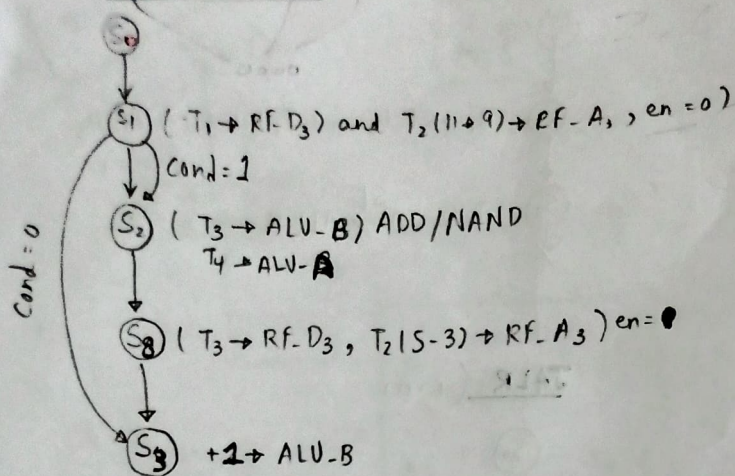 S0
S1 ( T1 → Rf-D3 ) and T2 (11→9) → RF-A3 , en = 0 )
Cond = 1
S2 ( T3 → ALU-B ) ADD/NAND
T4 → ALU-A
Cond = 0
S8 ( T3 → Rf-D3 , T2 (5-3) → RF-A3 ) en =
S3 +1 → ALU-B